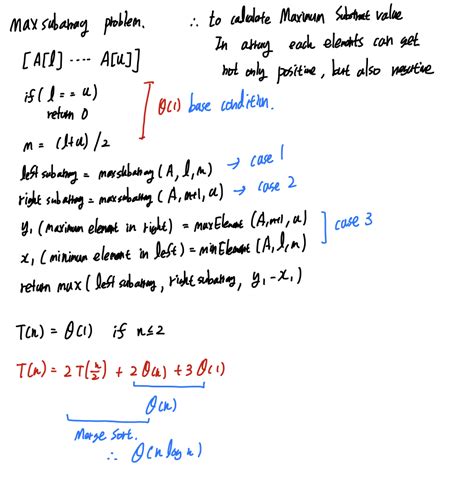 max subarray problem.
∴ to calculate Maximum Subtract value
In array each elements can get
not only positive, but also negative
[A[l] ---- A[u]]
if (l == u)
return 0
m = (l+u)/2
θ(1) base condition.
left subarray = maxsubarray (A, l, m) → case 1
right subarray = maxsubarray (A, m+1, u) → case 2
y₁ (maximum element in right) = maxElement (A, m+1, u)
x₁ (minimum element in left) = minElement (A, l, m)
case 3
return max (left subarray, right subarray, y₁ - x₁)
T(n) = θ(1) if n≤2
T(n) = 2T(n/2) + 2θ(n) + 3θ(1)
θ(n)
Merge sort.
∴ θ(n log n)